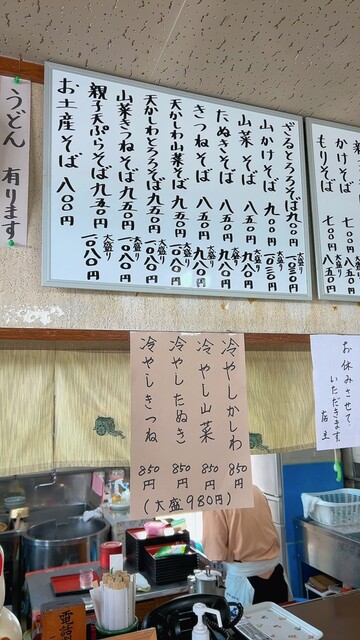 かけそば 七〇〇円 大盛り 八五〇円
もりそば 七〇〇円 大盛り 八五〇円
ざるとろろそば 九〇〇円 大盛り 一〇三〇円
山かけそば 九〇〇円 大盛り 一〇三〇円
山菜そば 八五〇円 大盛り 九八〇円
たぬきそば 八五〇円 大盛り 九八〇円
きつねそば 八五〇円 大盛り 九八〇円
天かしわ山菜そば 九五〇円 大盛り 一〇八〇円
天かしわとろろそば 九五〇円 大盛り 一〇八〇円
山菜きつねそば 九五〇円 大盛り 一〇八〇円
親子天ぷらそば 九五〇円 大盛り 一〇八〇円
お土産そば 八〇〇円
うどん 有ります
お休みさせて
いただきます。
店主
冷やしかしわ 850円
冷やし山菜 850円
冷やしたぬき 850円
冷やしきつね 850円
(大盛980円)
電話